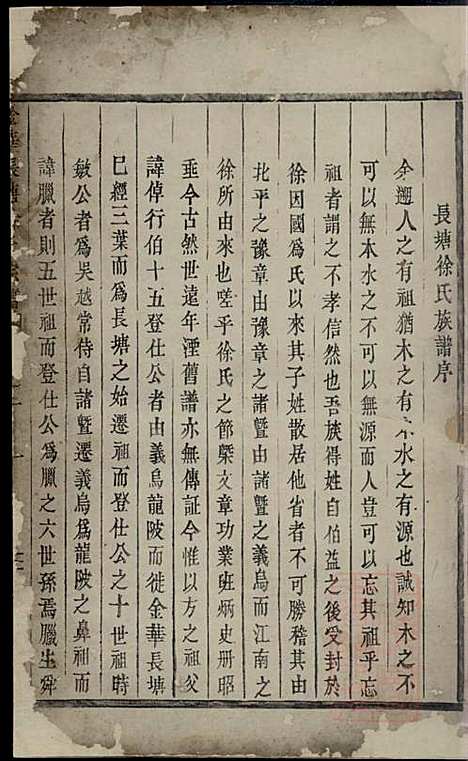 長塘徐氏族譜序
余邇人之有祖猶木之有本水之有源也誠知木之不
可以無本水之可以無源而人豈可以忘其祖乎忘
祖者謂之不孝信然也吾族得姓自伯益之後受封於
徐因國為氏以來其子姓散居他省者不可勝稽其由
北平之豫章由豫章之諸暨由諸暨之義烏而江南之
徐所由來也嗟乎徐氏之節槩文章功業班炳史册昭
垂今古然世遠年湮舊譜亦無傳証今惟以方之祖父
諱倬行伯十五登仕公者由義烏龍陂而徙金華長塘
巳經三葉而爲長塘之始遷祖而登仕公之十世祖時
敏公者爲吳越常侍自諸暨遷義烏爲龍陂之鼻祖而
諱臘者則五世祖而登仕公爲臘之六世孫焉臘生舜